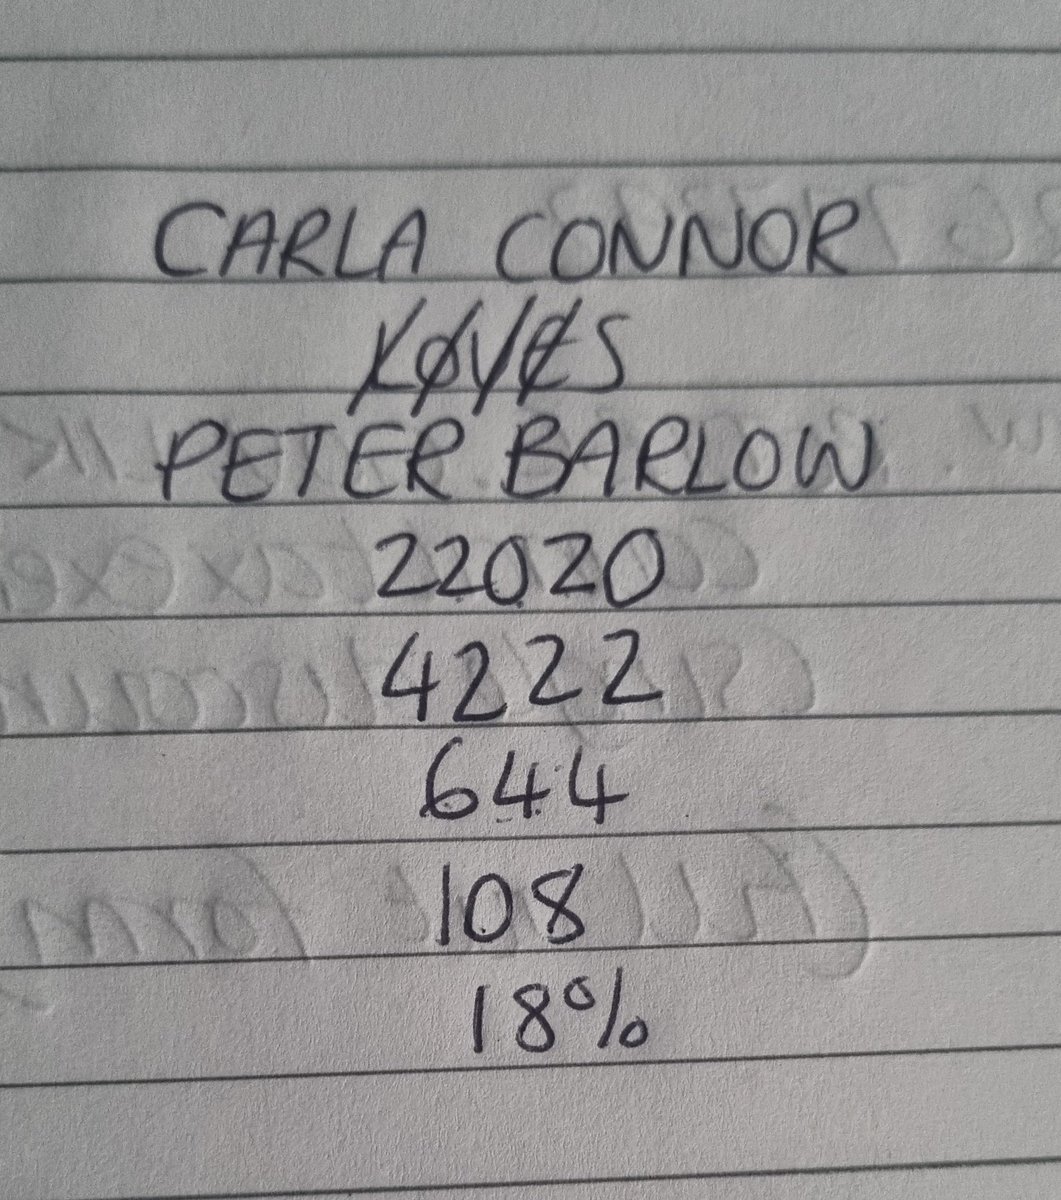 CARLA CONNOR
LOVES
PETER BARLOW
22020
4222
644
108
18%